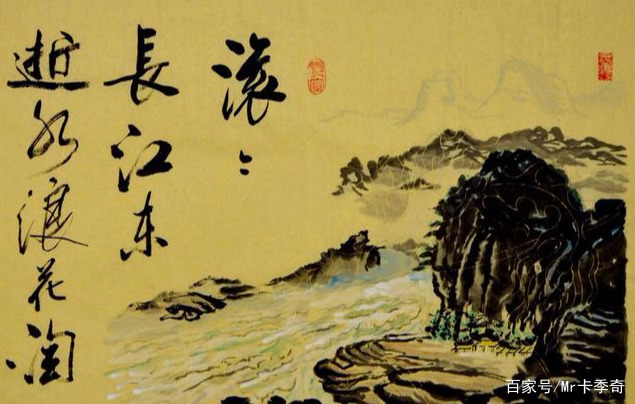 滚〻
長江东
逝水浪花淘
百家号/Mr卡季奇